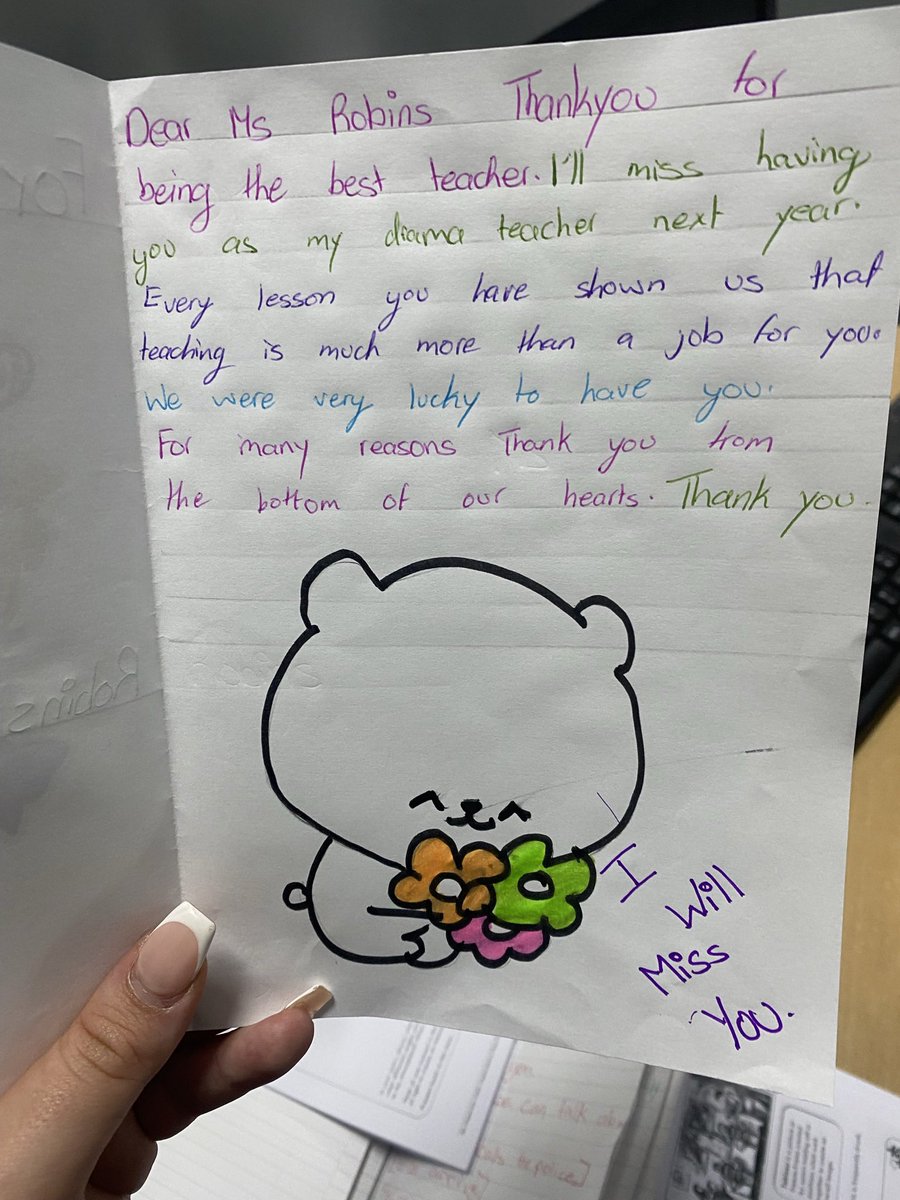 Dear Ms Robins Thankyou for
being the best teacher. I'll miss having
you as my drama teacher next year.
Every lesson you have shown us that
teaching is much more than a job for you.
We were very lucky to have you.
For many reasons Thank you from
the bottom of our hearts. Thank you.
I
Will
Miss
You.
For
Robins